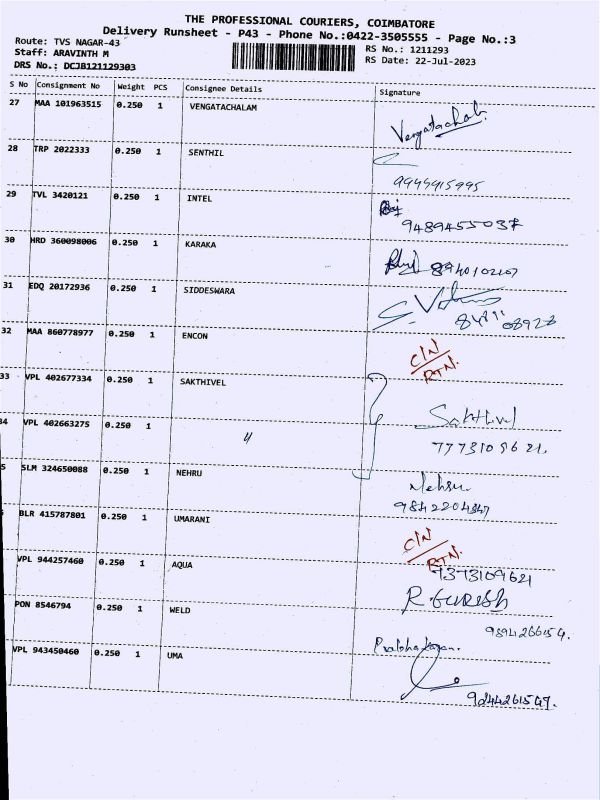 THE PROFESSIONAL COURIERS, COIMBATORE
Delivery Runsheet - P43 - Phone No.:0422-3505555 - Page No.:3
Route: TVS NAGAR-43
RS No.: 1211293
Staff: ARAVINTH M
RS Date: 22-Jul-2023
DRS No.: DCJB121129303
S No Consignment No Weight PCS Consignee Details Signature
27 MAA 101963515 0.250 1 VENGATACHALAM Vengatachalam
28 TRP 2022333 0.250 1 SENTHIL
9944915995
29 TVL 3420121 0.250 1 INTEL
9489455037
30 HRD 360098006 0.250 1 KARAKA 8940102107
31 EDQ 20172936 0.250 1 SIDDESWARA
32 MAA 860778977 0.250 1 ENCON C/N
RTN.
33 VPL 402677334 0.250 1 SAKTHIVEL
Sakthivel
34 VPL 402663275 0.250 1 4
7773109621
5 SLM 324650088 0.250 1 NEHRU Nehru
9842204347
BLR 415787801 0.250 1 UMARANI C/N
RTN.
VPL 944257460 0.250 1 AQUA 7373109621
R. SURESH
PON 8546794 0.250 1 WELD
9894266154.
VPL 943450460 0.250 1 UMA Prabhakaran.
9244261547.